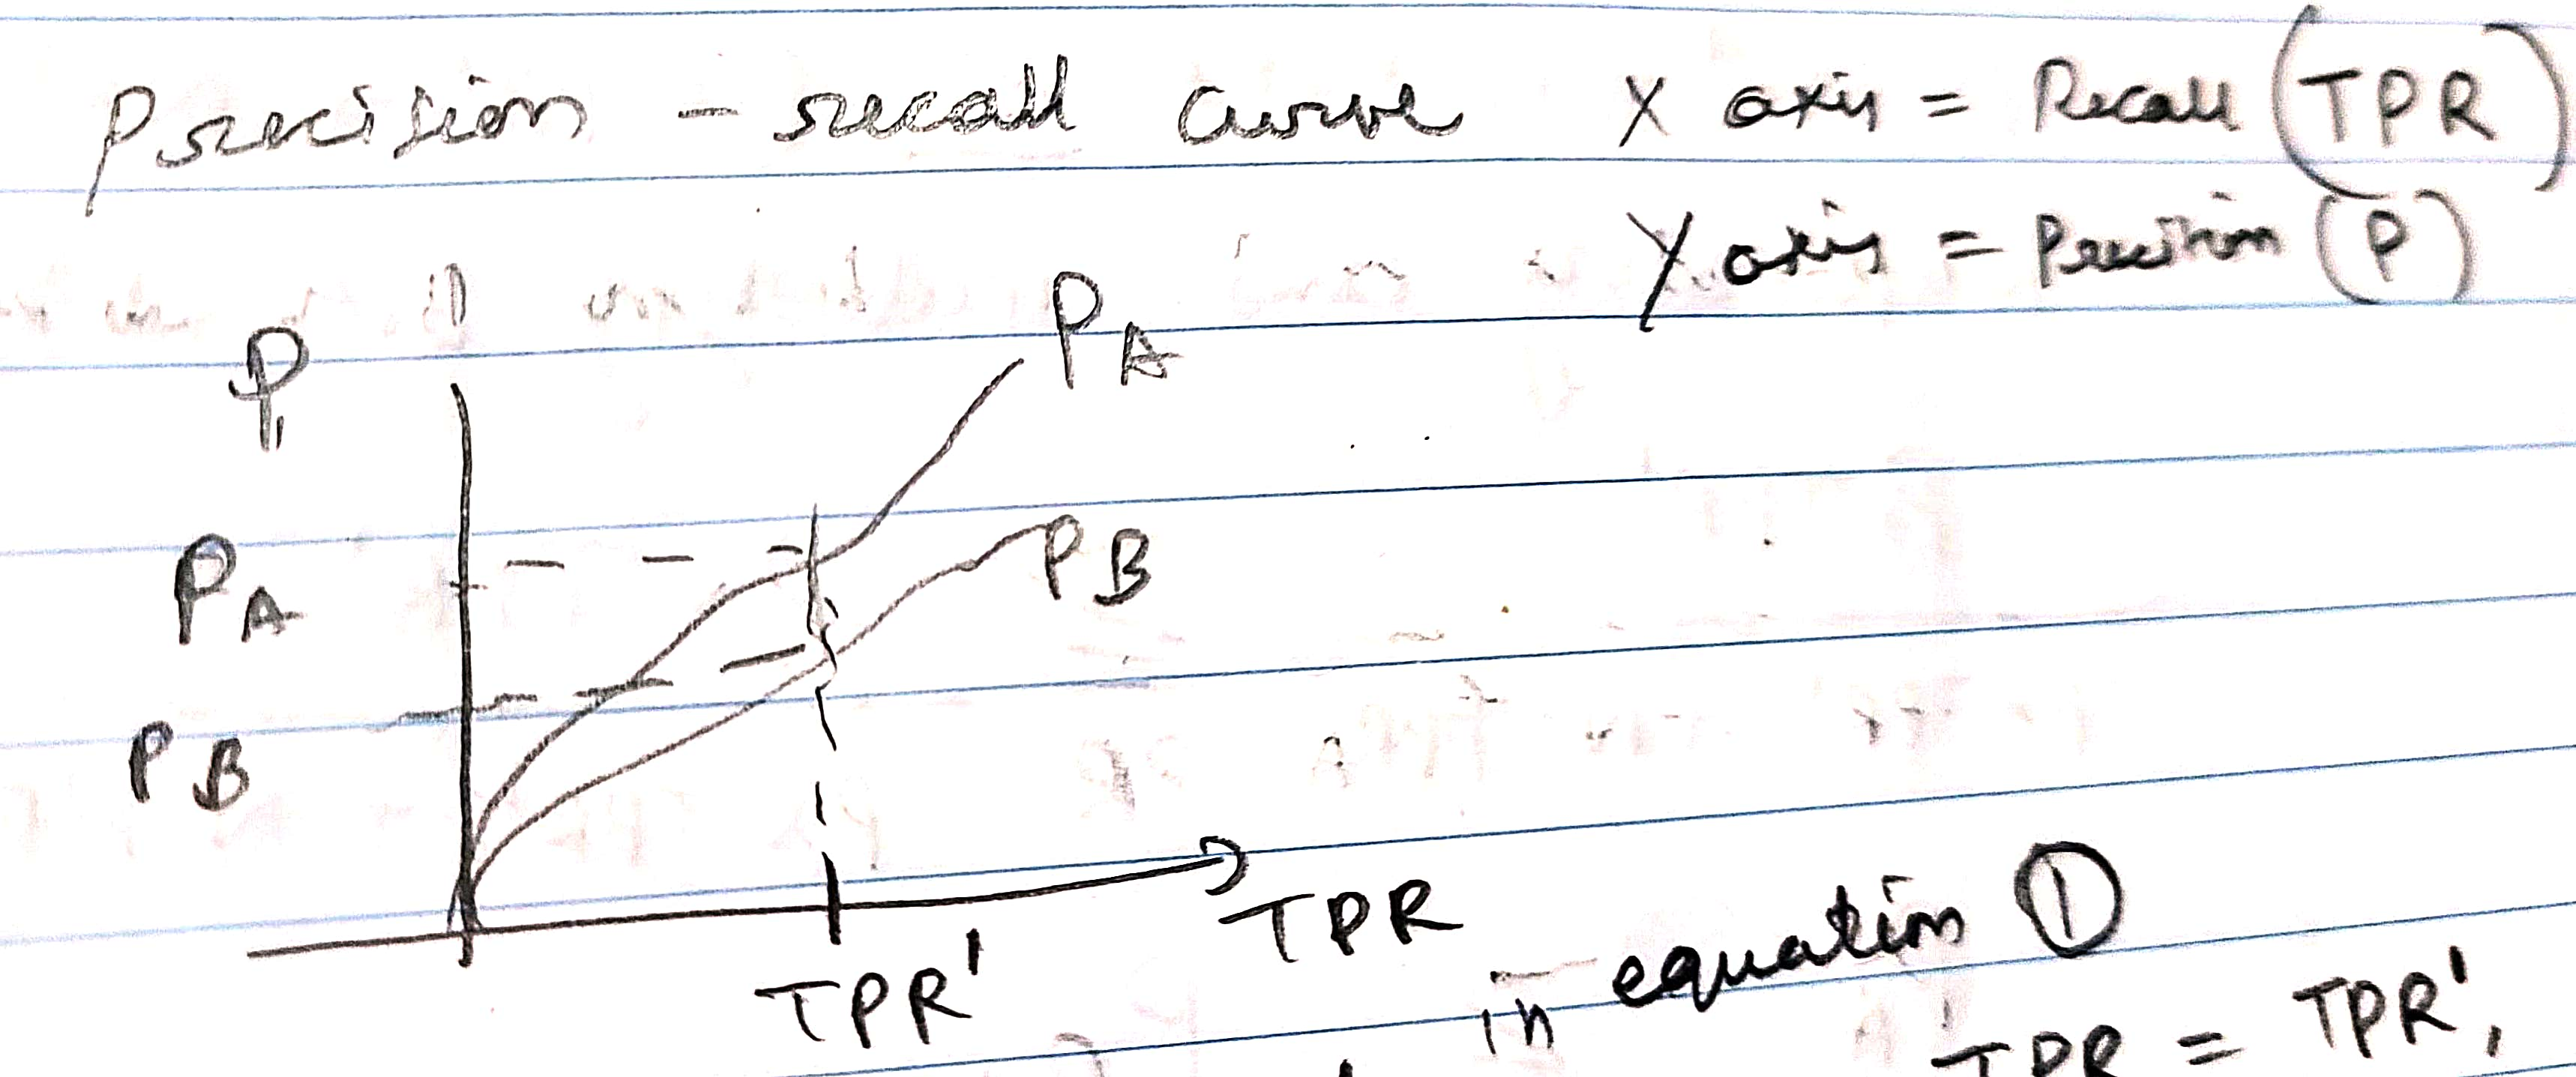 Precision - recall curve X axis = Recall (TPR)
Y axis = Precision (P)
P
PA
PA
PB
PB
TPR
TPR'
in equation ①
TPR = TPR',